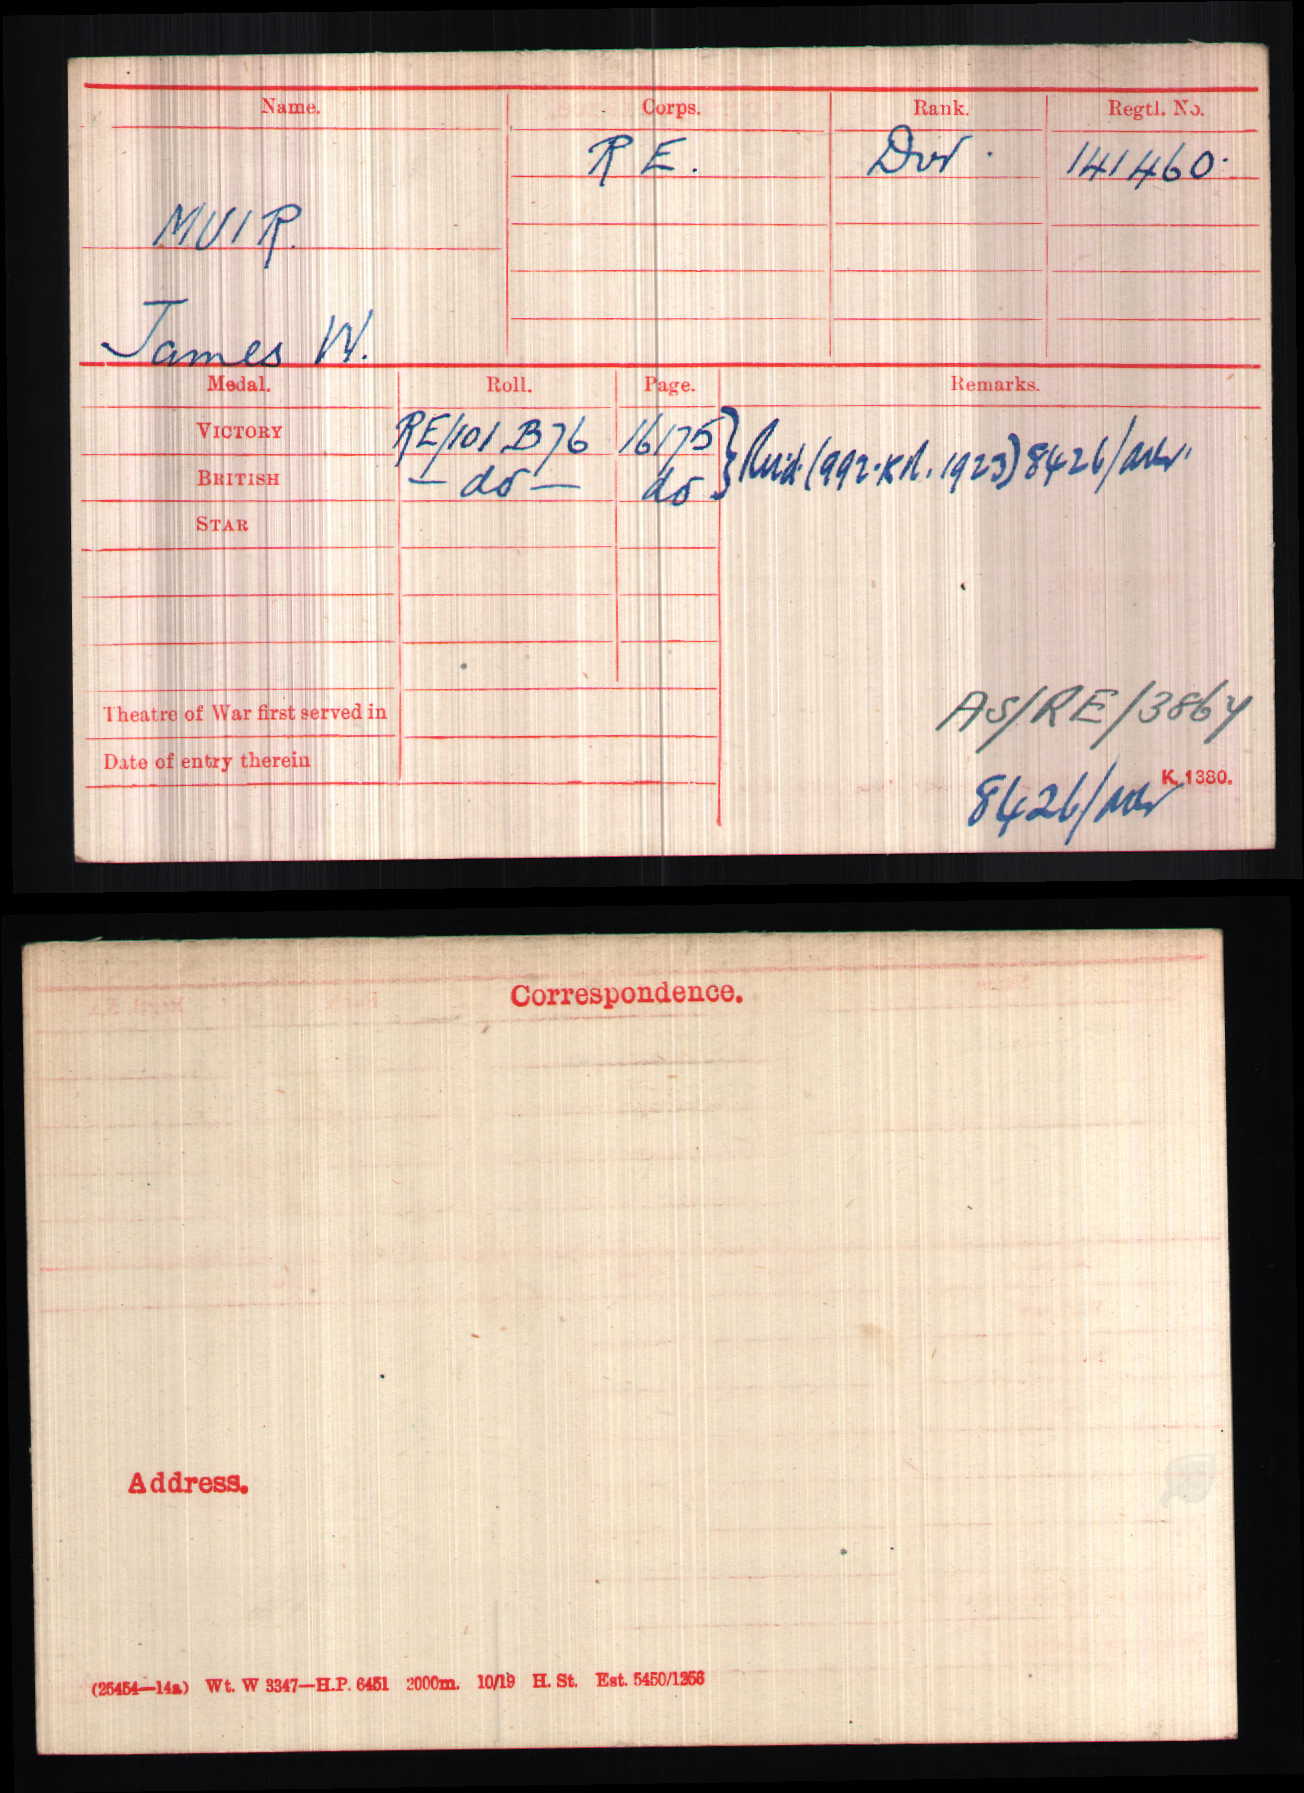 Name. Corps. Rank. Regtl. No.
R E. Dvr. 141460.
MUIR.
James W.
Medal. Roll. Page. Remarks.
VICTORY RE/101 B76 16175
BRITISH — do — do } (992. KR. 1923) 8426/adv.
STAR
Theatre of War first served in
AS/RE/3864
Date of entry therein
K. 1380.
8426/adv
Correspondence.
Address.
(25454—14a) Wt. W 3347—H.P. 6451 2000m. 10/19 H. St. Est. 5450/1256